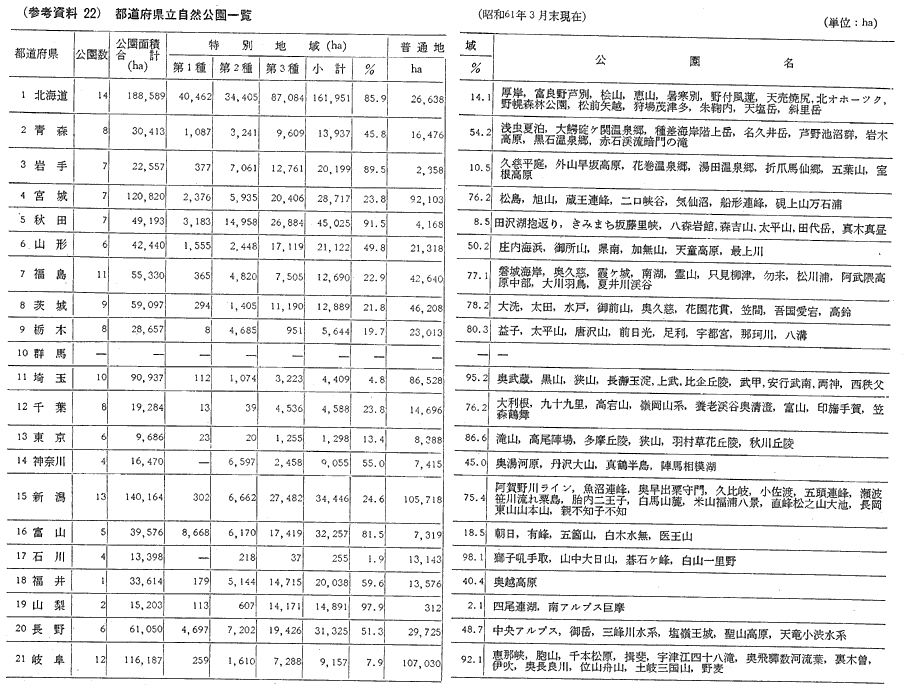 (参考資料 22) 都道府県立自然公園一覧 (昭和61年3月末現在) (単位:ha)
都道府県 公園数 公園面積合計(ha) 特別地域(ha) 普通地域
第1種 第2種 第3種 小計 % ha % 公園名
1 北海道 14 188,589 40,462 34,405 87,084 161,951 85.9 26,638 14.1 厚岸,富良野芦別,桧山,恵山,暑寒別,野付風蓮,天売焼尻,北オホーツク,
野幌森林公園,松前矢越,狩場茂津多,朱鞠内,天塩岳,斜里岳
2 青森 8 30,413 1,087 3,241 9,609 13,937 45.8 16,476 54.2 浅虫夏泊,大鰐碇ケ関温泉郷,種差海岸階上岳,名久井岳,芦野池沼群,岩木
高原,黒石温泉郷,赤石渓流暗門の滝
3 岩手 7 22,557 377 7,061 12,761 20,199 89.5 2,358 10.5 久慈平庭,外山早坂高原,花巻温泉郷,湯田温泉郷,折爪馬仙郷,五葉山,室
根高原
4 宮城 7 120,820 2,376 5,935 20,406 28,717 23.8 92,103 76.2 松島,旭山,蔵王連峰,二口峡谷,気仙沼,船形連峰,硯上山万石浦
5 秋田 7 49,193 3,183 14,958 26,884 45,025 91.5 4,168 8.5 田沢湖抱返り,きみまち坂藤里峡,八森岩館,森吉山,太平山,田代岳,真木真昼
6 山形 6 42,440 1,555 2,448 17,119 21,122 49.8 21,318 50.2 庄内海浜,御所山,県南,加無山,天童高原,最上川
7 福島 11 55,330 365 4,820 7,505 12,690 22.9 42,640 77.1 磐城海岸,奥久慈,霞ケ城,南湖,霊山,只見柳津,勿来,松川浦,阿武隈高
原中部,大川羽鳥,夏井川渓谷
8 茨城 9 59,097 294 1,405 11,190 12,889 21.8 46,208 78.2 大洗,太田,水戸,御前山,奥久慈,花園花貫,笠間,吾国愛宕,高鈴
9 栃木 8 28,657 8 4,685 951 5,644 19.7 23,013 80.3 益子,太平山,唐沢山,前日光,足利,宇都宮,那珂川,八溝
10 群馬 — — — — — — — — — —
11 埼玉 10 90,937 112 1,074 3,223 4,409 4.8 86,528 95.2 奥武蔵,黒山,狭山,長瀞玉淀,上武,比企丘陵,武甲,安行武南,両神,西秩父
12 千葉 8 19,284 13 39 4,536 4,588 23.8 14,696 76.2 大利根,九十九里,高宕山,嶺岡山系,養老渓谷奥清澄,富山,印旛手賀,笠
森鶴舞
13 東京 6 9,686 23 20 1,255 1,298 13.4 8,388 86.6 滝山,高尾陣場,多摩丘陵,狭山,羽村草花丘陵,秋川丘陵
14 神奈川 4 16,470 — 6,597 2,458 9,055 55.0 7,415 45.0 奥湯河原,丹沢大山,真鶴半島,陣馬相模湖
15 新潟 13 140,164 302 6,662 27,482 34,446 24.6 105,718 75.4 阿賀野川ライン,魚沼連峰,奥早出粟守門,久比岐,小佐渡,五頭連峰,瀬波
笹川流れ粟島,胎内二王子,白馬山麓,米山福浦八景,直峰松之山大池,長岡
東山山本山,親不知子不知
16 富山 5 39,576 8,668 6,170 17,419 32,257 81.5 7,319 18.5 朝日,有峰,五箇山,白木水無,医王山
17 石川 4 13,398 — 218 37 255 1.9 13,143 98.1 獅子吼手取,山中大日山,碁石ケ峰,白山一里野
18 福井 1 33,614 179 5,144 14,715 20,038 59.6 13,576 40.4 奥越高原
19 山梨 2 15,203 113 607 14,171 14,891 97.9 312 2.1 四尾連湖,南アルプス巨摩
20 長野 6 61,050 4,697 7,202 19,426 31,325 51.3 29,725 48.7 中央アルプス,御岳,三峰川水系,塩嶺王城,聖山高原,天竜小渋水系
21 岐阜 12 116,187 259 1,610 7,288 9,157 7.9 107,030 92.1 恵那峡,胞山,千本松原,揖斐,宇津江四十八滝,奥飛騨数河流葉,裏木曽,
伊吹,奥長良川,位山舟山,土岐三国山,野麦